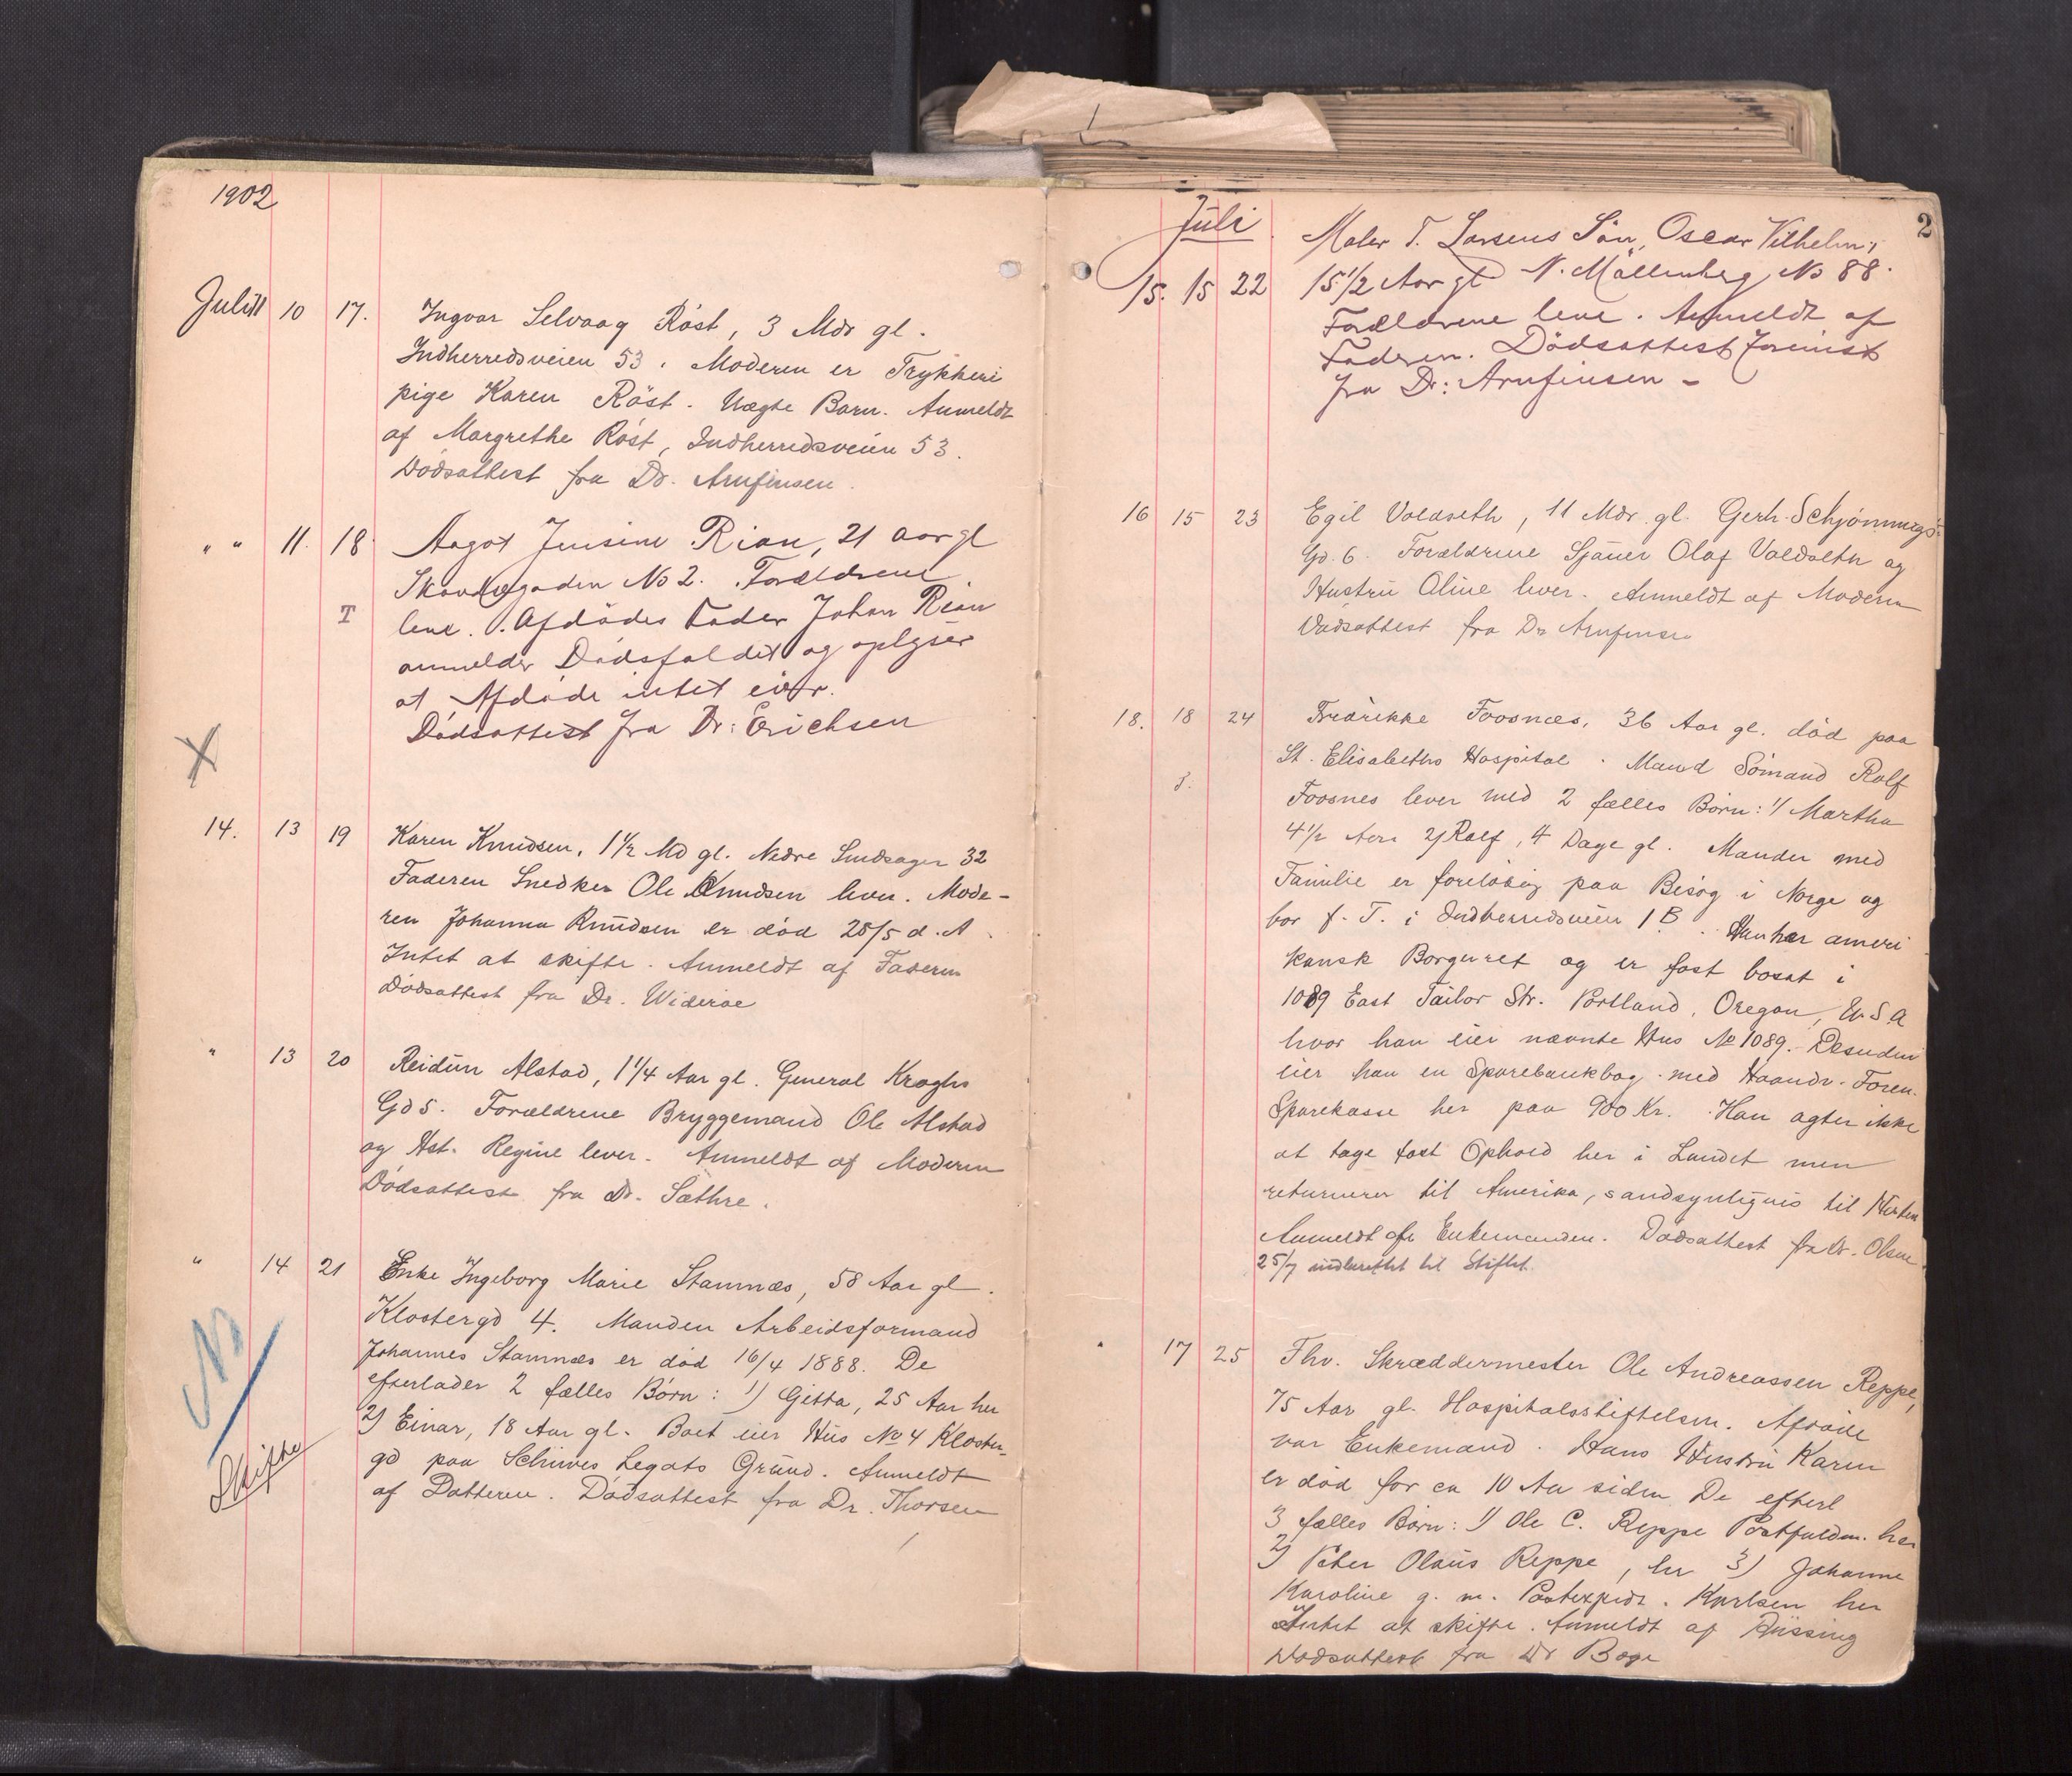 1902
Juli 11 10 17. Ingvar Selvaag Röst, 3 Mdr gl.
Indherredsveien 53. Moderen er Trykkeri
pige Karen Röst. Uægte Barn. Anmeldt
af Margrethe Röst, Indherredsveien 53.
Dödsattest fra Dr. Arnfinsen.
" " 11. 18 Aagot Jensine Rian, 21 aar gl
No 2. Forældrene
T
leve. Afdödes Fader Johan Rian
anmelder Dödsfaldet og oplyser
at Afdöde intet eier.
Dödsattest fra Dr: Erichsen
X
14. 13 19 Karen Knudsen, 1 1/2 Md gl. Nedre 32
Faderen Snedker Ole Knudsen lever. Mode-
ren Johanna Knudsen er död 25/5 d. A.
Intet at skifte. Anmeldt af Faderen
Dödsattest fra Dr. Wideröe
" 13 20 Reidun Alstad, 1 1/4 Aar gl. General Kroghs
Gd 5. Forældrene Bryggemand Ole Alstad
og Hst. Regine lever. Anmeldt af Moderen
Dödsattest fra Dr. Sæthre.
" 14 21 Enke Ingeborg Marie Stamnæs, 58 Aar gl.
Klostergd 4. Manden Arbeidsformand
Johannes Stamnæs er död 16/4 1888. De
efterlader 2 fælles Börn: 1) Gitta, 25 Aar her
2) Einar, 18 Aar gl. Boet eier Hus No 4 Kloster-
gd paa Schives Legats Grund. Anmeldt
Skifte
af Datteren. Dödsattest fra Dr. Thorsen
2
Juli Maler T. Larsens Sön, Oscar Vilhelm,
15. 15 22 15 1/2 Aar gl N. Möllenberg No 88.
Forældrene leve. Anmeldt af
Faderen. Dödsattest
fra Dr: Arnfinsen -
16 15 23 Egil Voldseth, 11 Mdr gl. Gerh. Schjönnings
Gd. 6. Forældrene Sjauer Olaf Voldseth og
Hustru Oline lever. Anmeldt af Moderen
Dödsattest fra Dr Arnfinsen
18. 18 24 Fredrikke Foosnæs, 36 Aar gl. död paa
St. Elisabeths Hospital. Mand Sömand Rolf
Foosnes lever med 2 fælles Börn: 1/ Martha
4 1/2 Aar 2/ Rolf, 4 Dage gl. Manden med
Familie er forelöbig paa Besög i Norge og
bor f. T. i Indherredsveien 1 B. Han har ameri
kansk Borgerret og er fast bosat i
1089 East Tailor Str. Portland, Oregon, U.S.A
hvor han eier nævnte Hus No 1089. Desuden
eier han en Sparebankbog med Haandv. Foren.
Sparekasse her paa 900 Kr. Han agter ikke
at tage fast Ophold her i Landet men
returnerer til Amerika, sandsynligvis til Hösten
Anmeldt af Enkemanden. Dödsattest fra Dr. Olsen
25/7 indberettet til Stiftet.
" 17 25 Fhv. Skræddermester Ole Andreassen Reppe,
75 Aar gl. Hospitalsstiftelsen. Afdöde
var Enkemand. Hans Hustru Karen
er död for ca 10 Aar siden De efterl
3 fælles Börn: 1) Ole C. Reppe Postfuldm. her
2) Peter Olaus Reppe, her 3) Johanne
Karoline g. m. Postexped. Karlsen her
Intet at skifte. Anmeldt af Rüssing
Dödsattest fra Dr Boge